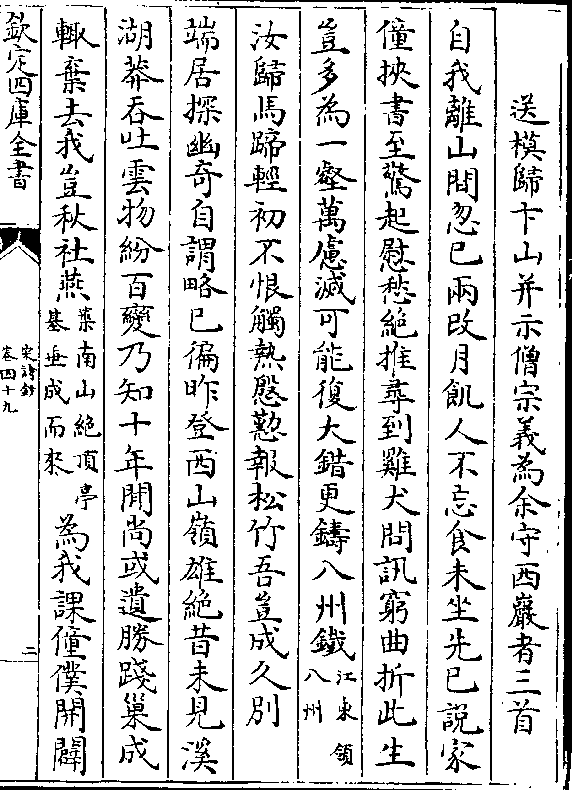 送模歸卞山并示僧宗義為余守西巖者三首
自我離山間忽已兩改月飢人不忘食未坐先已說家
僮挾書至驚起慰愁絕推尋到雞犬問訊窮曲折此生
豈多為一壑萬慮滅可能復大錯更鑄八州鐵江東領八州
汝歸馬蹄輕初不恨觸熱慇懃報松竹吾豈成久別
端居探幽奇自謂略已徧昨登西山嶺雄絕昔未見溪
湖莽吞吐雲物紛百變乃知十年閒尚或遺勝踐巢成
輙棄去我豈秋社燕築南山絕頂亭基垂成而來為我課僮僕開闢
欽定四庫全書
宋詩鈔
卷四十九
二